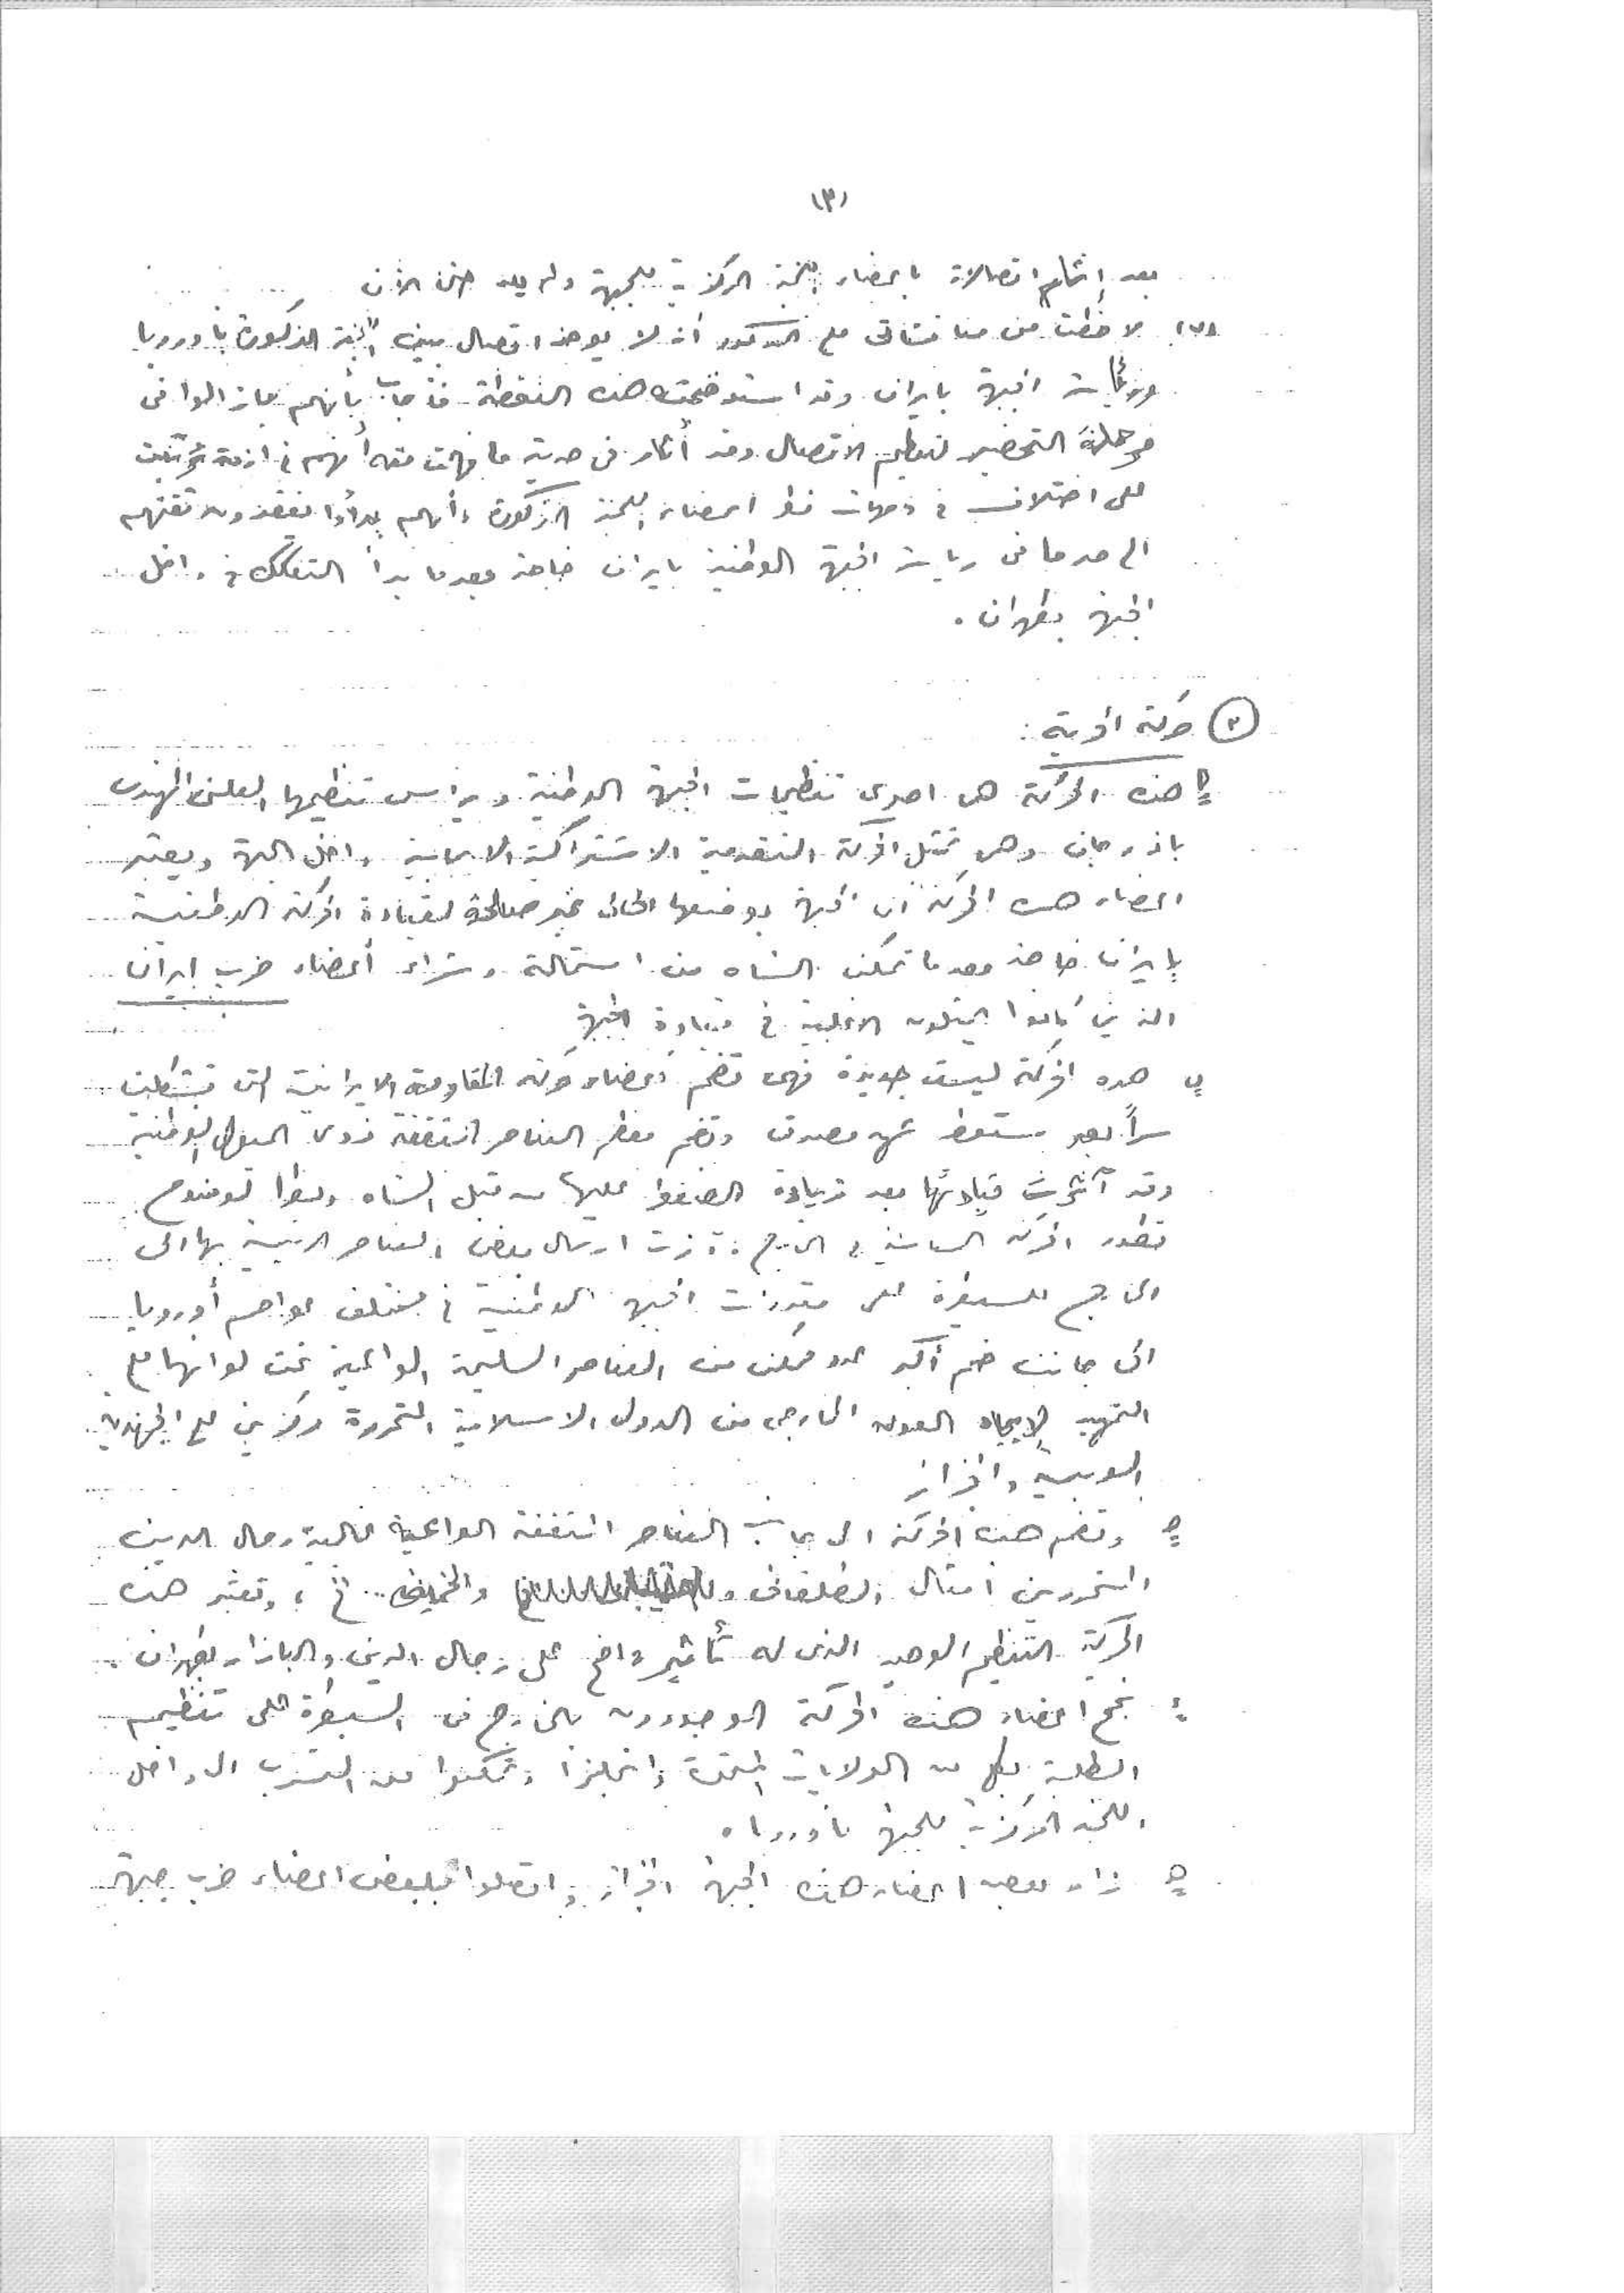 (٣)
بعد إتمام اتصالاته باعضاء اللجنة المركزية للجبهة ولم يعد حتى الآن
(٧) لاحظت من مناقشاتى مع المذكور أنه لا يوجد اتصال بين اللجنة المذكورة بأوروبا
ورئاسة الجبهة بايران وقد استوضحته هذه النقطة فأجاب بأنهم مازالوا فى
مرحلة التحضير لتنظيم الاتصال وقد أشار فى حديثه ما فهمت منه أنهم فى ازمة ترتبت
على اختلاف فى وجهات نظر اعضاء اللجنة المذكورة وأنهم بدأوا يفقدون ثقتهم
الى حد ما فى رياسة الجبهة الوطنية بايران خاصة بعدما بدأ التفكك فى داخل
الجبهة بطهران .
(٣) حركة الحرية :
أ هذه الحركة هى احدى تنظيمات الجبهة الوطنية ويرأس تنظيمها العلنى المهندس
بازرجان وهى تمثل الحركة التقدمية الاشتراكية الايمانية داخل الجبهة ويعتبر
اعضاء هذه الحركة أن الجبهة بوضعها الحالى غير صالحة لقيادة الحركة الوطنية
بايران خاصة بعدما تمكن الشاه من استمالة وشراء أعضاء حزب ايران
الذين كانوا يمثلون الاغلبية فى قيادة الجبهة
ب هذه الحركة ليست جديدة فهى تضم أعضاء حركة المقاومة الايرانية التى تشكلت
سراً بعد سقوط عهد مصدق وتضم معظم العناصر المثقفة ذوى الميول الوطنية
وقد آثرت قيادتها بعد زيادة الضغط عليها من قبل الشاه ونظرا لوضوح
تطور الحركة السياسية فى الخارج قررت ارسال بعض العناصر الرئيسية بها الى
الخارج للسيطرة على مقدرات الجبهة الوطنية فى مختلف عواصم أوروبا
الى جانب ضم أكبر عدد ممكن من العناصر السليمة الواعية تحت لوائها مع
التمهيد لإيجاد العون الخارجى من الدول الاسلامية المتحررة مركزين على الجمهورية
العربية والجزائر
ج وتضم هذه الحركة الى جانب العناصر المثقفة الواعية غالبية رجال الدين
المتحررين امثال الطلقانى و والخمينى .. الخ ، وتعتبر هذه
الحركة التنظيم الوحيد الذى له تأثير واضح على رجال الدين والبازار بطهران .
د نجح اعضاء هذه الحركة الموجودون بالخارج فى السيطرة على تنظيم
الطلبة بكل من الولايات المتحدة وانجلترا وتمكنوا من التسرب الى داخل
اللجنة المركزية للجبهة بأوروبا .
هـ زار بعض اعضاء هذه الجبهة الجزائر واتصلوا ببعض اعضاء حزب جبهة